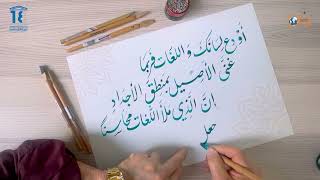 أودع لسانك واللغات فربما
غنى الأصيل بمنطق الأجداد
إن الذي ملأ اللغات محاسنا
جعل